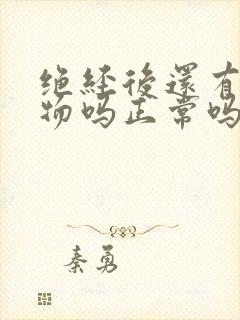 绝經後還有
物吗正常吗
秦勇